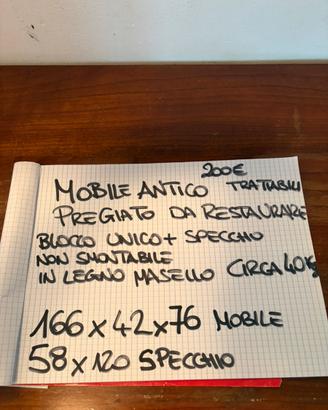 200€
MOBILE ANTICO TRATTABILI
PREGIATO DA RESTAURARE
BLOCCO UNICO + SPECCHIO
NON SMONTABILE
IN LEGNO MASELLO CIRCA 40KG
166 x 42 x 76 MOBILE
58 x 120 SPECCHIO